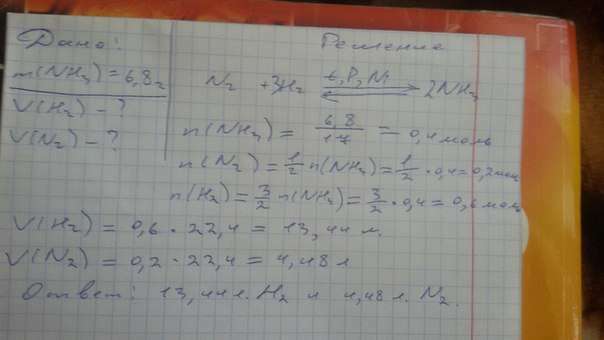 Дано:
Решение
m(NH3) = 6,8г
V(H2) - ?
V(N2) - ?
N2 + 3H2 ⇄ 2NH3
t, P, Ni
n(NH3) = 6,8/17 = 0,4 моль
n(N2) = 1/2 n(NH3) = 1/2 · 0,4 = 0,2 мол
n(H2) = 3/2 n(NH3) = 3/2 · 0,4 = 0,6 мол
V(H2) = 0,6 · 22,4 = 13,44 л.
V(N2) = 0,2 · 22,4 = 4,48 л
Ответ: 13,44 л. H2 и 4,48 л. N2.